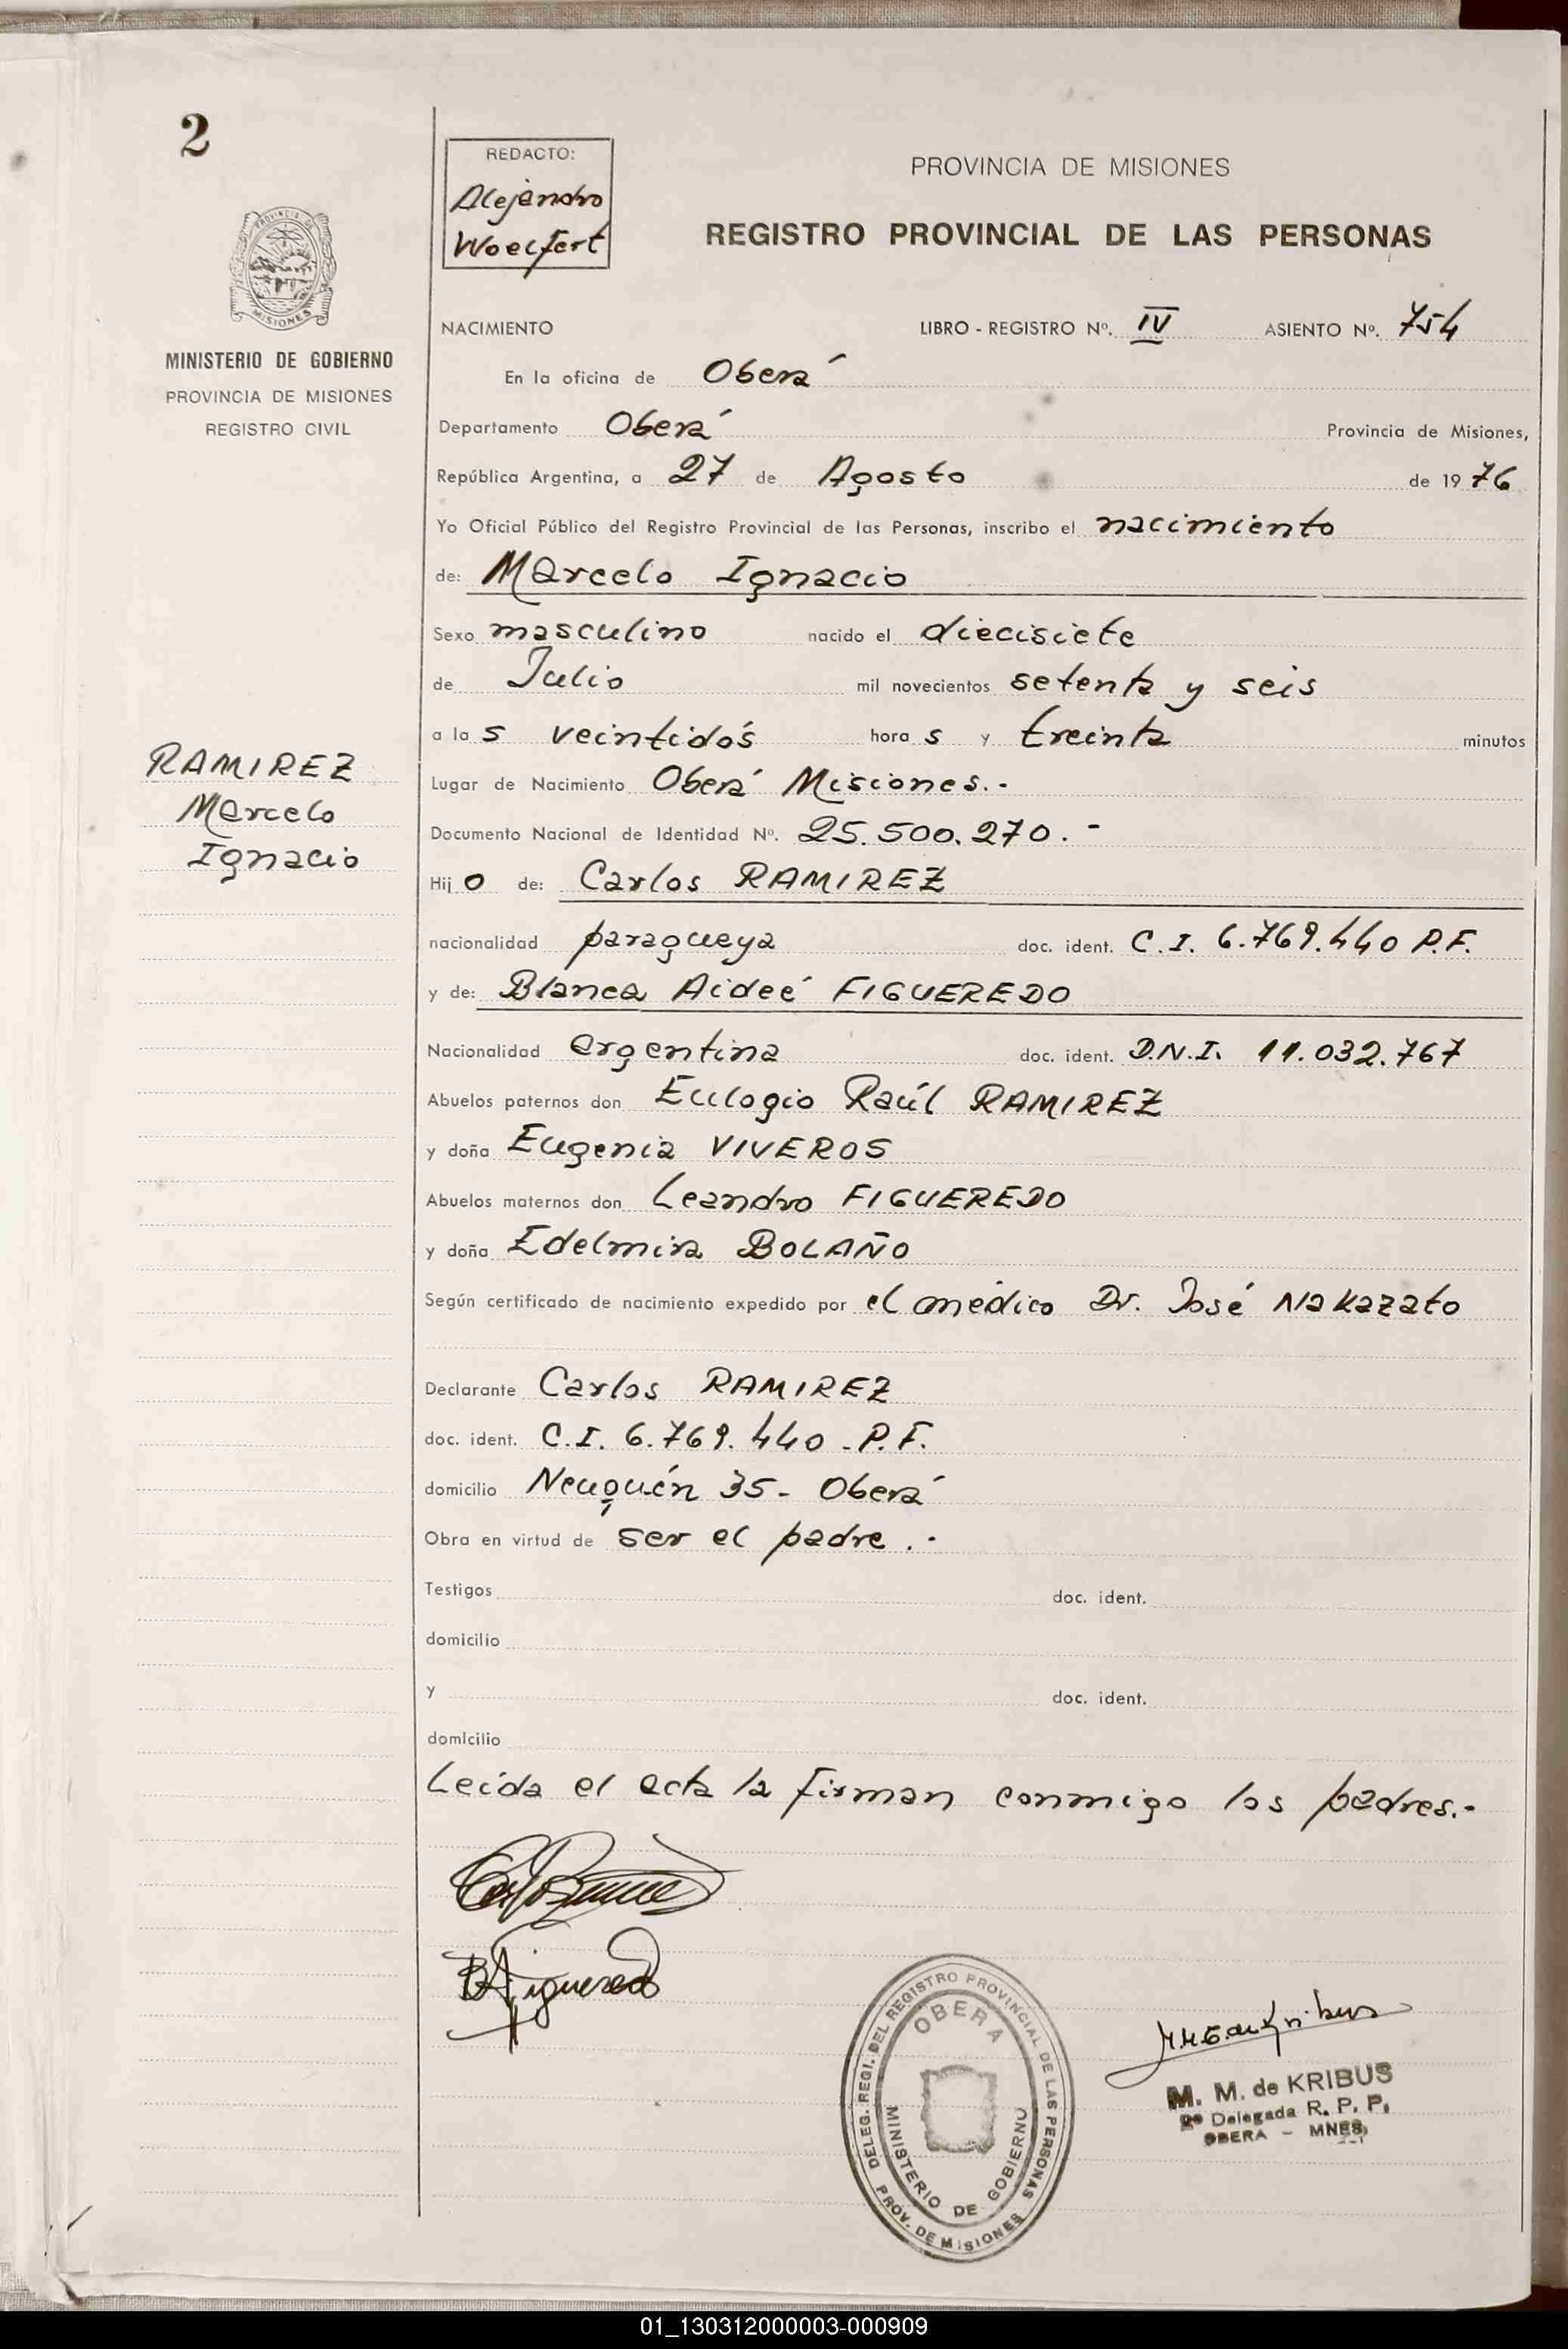 2
PROVINCIA DE
MISIONES
MINISTERIO DE GOBIERNO
PROVINCIA DE MISIONES
REGISTRO CIVIL
RAMIREZ
Marcelo
Ignacio
REDACTO:
Alejandro
Woelfert
PROVINCIA DE MISIONES
REGISTRO PROVINCIAL DE LAS PERSONAS
NACIMIENTO LIBRO - REGISTRO Nº. IV ASIENTO Nº. 754
En la oficina de Oberá
Departamento Oberá Provincia de Misiones,
República Argentina, a 27 de Agosto de 1976
Yo Oficial Público del Registro Provincial de las Personas, inscribo el nacimiento
de: Marcelo Ignacio
Sexo masculino nacido el diecisiete
de Julio mil novecientos setenta y seis
a las veintidós horas y treinta minutos
Lugar de Nacimiento Oberá Misiones.-
Documento Nacional de Identidad Nº. 25.500.270.-
Hijo de: Carlos RAMIREZ
nacionalidad paragueya doc. ident. C.I. 6.769.440 P.F.
y de: Blanca Aideé FIGUEREDO
Nacionalidad argentina doc. ident. D.N.I. 11.032.767
Abuelos paternos don Eulogio Raúl RAMIREZ
y doña Eugenia VIVEROS
Abuelos maternos don Leandro FIGUEREDO
y doña Edelmira BOLAÑO
Según certificado de nacimiento expedido por el médico Dr. José Nakazato
Declarante Carlos RAMIREZ
doc. ident. C.I. 6.769.440 - P.F.
domicilio Neuquén 35- Oberá
Obra en virtud de ser el padre.-
Testigos doc. ident.
domicilio
y doc. ident.
domicilio
Leída el acta la firman conmigo los padres.-
BAFigueredo
DELEG. REGI. DEL REGISTRO PROVINCIAL DE LAS PERSONAS
OBERA
MINISTERIO DE GOBIERNO
PROV. DE MISIONES
M. M. de KRIBUS
2º Delegada R. P. P.
OBERA - MNES.
01_130312000003-000909